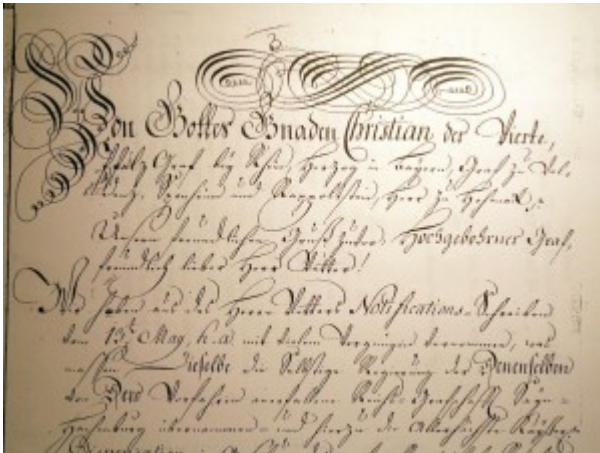 Von Gottes Gnaden Christian der Vierte,
Pfaltz Graf bey Rhein, Hertzog in Bayern, Graf zu Vel-
dentz, Sponheim und Rappoltstein, Herr zu Hohenack p.
Unsern freundlichen Gruß zuvor, Hochgebohrner Graf,
freundlich lieber Herr Vetter!
Wir haben aus des Herrn Vetters Notifications-Schreiben
vom 13t May, h.a. mit vielem Vergnügen vernommen, was
massen Dieselbe die Regierung der Denenselben
von Dero Vorfahren Reichs-Grafschafft Sayn-
Hachenburg übernommen- und hierzu die Allerhöchste Kayser-